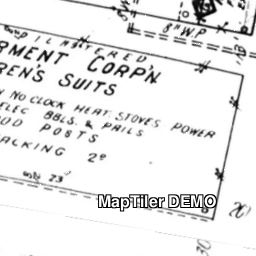 ILASTERED
8" W.P
RMENT CORP'N
REN'S SUITS
NO CLOCK HEAT: STOVES POWER
ELEC BBLS. & PAILS
OD POSTS
ACKING 2º
23'
MapTiler DEMO
30